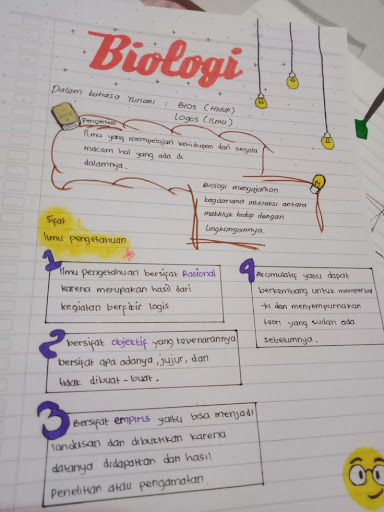 Biologi
Dalam bahasa Yunani : Bios (Hidup)
Logos (Ilmu)
Pengertian
Ilmu yang mempelajari kehidupan dan segala
macam hal yang ada di
dalamnya.
Biologi mengajarkan
bagaimana interaksi antara
makhluk hidup dengan
lingkungannya.
Sifat
Ilmu pengetahuan
1
Ilmu pengetahuan bersifat Rasional
karena merupakan hasil dari
kegiatan berfikir logis
2
bersifat objektif yang
bersifat apa adanya, jujur, dan
tidak dibuat-buat.
3
Bersifat empiris yaitu bisa menjadi
landasan dan dibuktikan karena
datanya didapatkan dari hasil
Penelitian atau pengamatan.
4
Akumulatif yaitu dapat
berkembang untuk memperba
-iki dan menyempurnakan
teori yang sudah ada
sebelumnya.